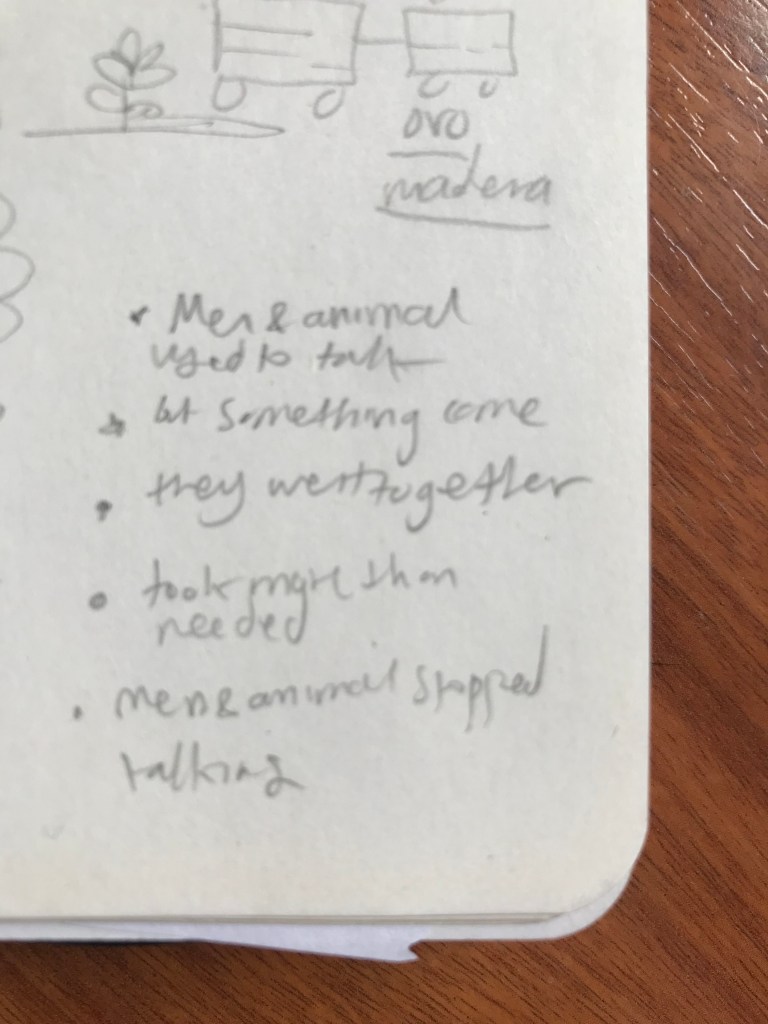 oro
madera
• Men & animal
used to talk
• but something come
• they went together
• took more than
needed
• men & animal stopped
talking